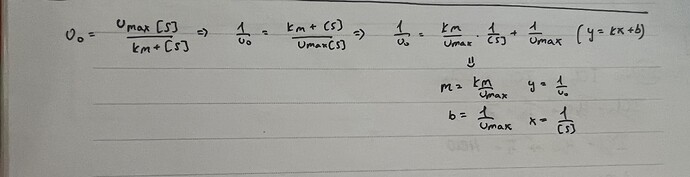 υ₀ = υmax [S] / km + [S] => 1/υ₀ = km + [S] / υmax[S] => 1/υ₀ = km/υmax · 1/[S] + 1/υmax (y = kx + b)
=>
m = km/υmax y = 1/υ₀
b = 1/υmax x = 1/[S]